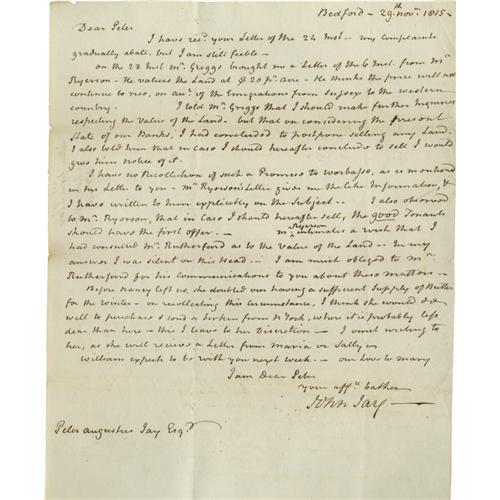 Bedford - 29th. novr. 1815 -
Dear Peter
I have recd. your Letter of the 24 Inst - my complaints
gradually abate, but I am still feeble -
on the 23 Inst Mr. Griggs brought me a Letter of the 6 Inst. from Mr
Ryerson - He values the Land at 20 pr. acre - He thinks the price will not
continue to rise, on acct. of the Emigrations from Sussex to the western
country. I told Mr. Griggs that I should make further Inquiries
respecting the Value of the Land - but that on considering the present
State of our Banks, I had concluded to postpone selling any Land.
I also told him that in case I should hereafter conclude to sell I would
give him notice of it.
I have no Recollection of such a Promise to Worbasse, as is mentioned
in his Letter to you - Mr. Ryerson's Letter gives me the like Information, &
I have written to him explicitly on the Subject - I also observed
to Mr. Ryerson, that in Case I should hereafter sell, the good Tenants
should have the first offer. - Mr. Ryerson intimates a wish that I
had consulted Mr. Rutherford as to the Value of the Land - In my
answer I was silent on this Head - I am much obliged to Mr
Rutherford for his communications to you about these matters -
Before Nancy left us, she doubted our having a sufficient Supply of Butter
for the winter - on recollecting this circumstance, I think she would do
well to purchase & send a firkin from N York, where it is probably less
dear than here - this I leave to her Discretion - I omit writing to
her, as she will receive a Letter from Maria or Sally -
William expects to be with you next week - our Love to Mary
I am Dear Peter
your afft. Father
John Jay -
Peter Augustus Jay Esqr.